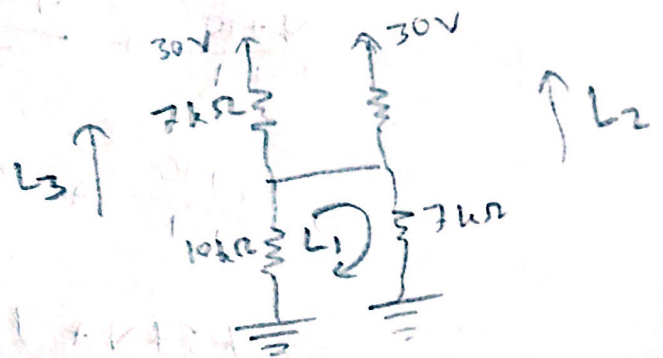 30V
30V
7kΩ
L2
L3
10kΩ
L1
7kΩ